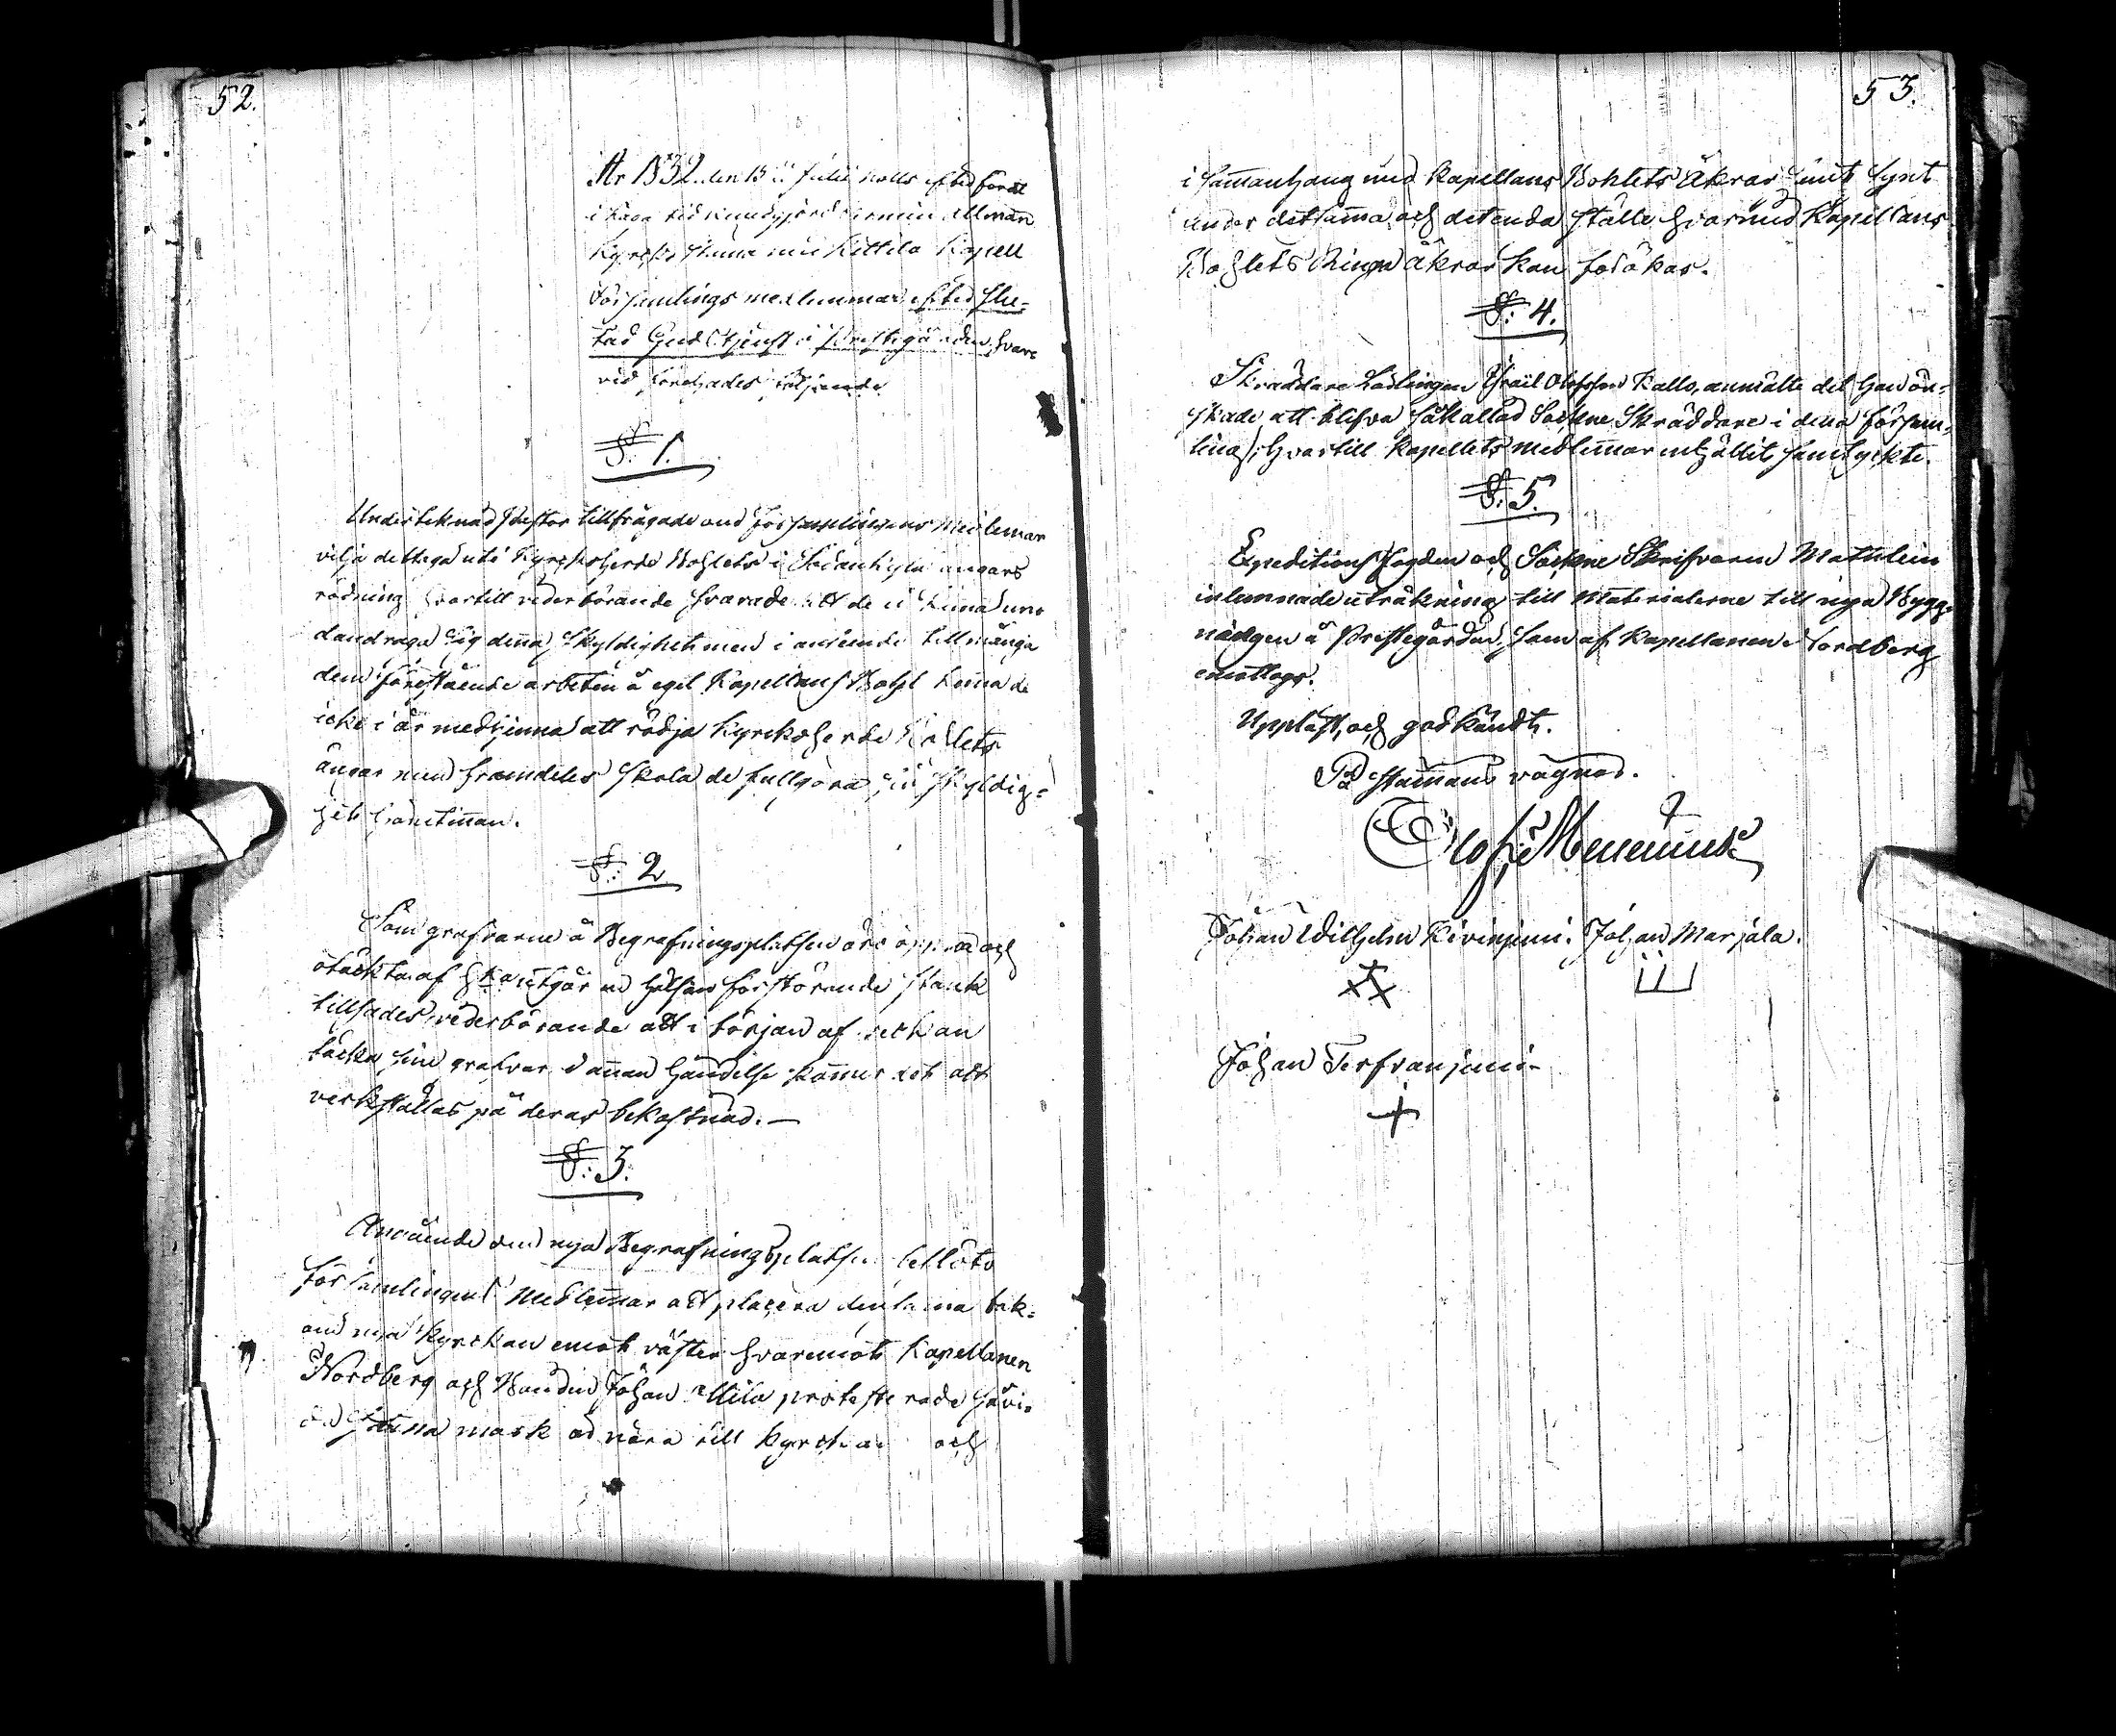 52.
År 1832 den 15 Julii holls efter förut
i laga tid kundgjord allmän
Kyrko Stämma med Kittilä Kapell
Församlings medlemmar efter slu-
tad Gudstjenst i Prestegården, hvar-
vid förehades följande
§: 1.
Undertecknad Pastor tillfrågade om Församlingens Medlemar
vilja deltaga uti Kyrkoherde Bohlets i Sodankylä ängars
rödning hvartill vederbörande svarade att de ej kunna un-
dandraga sig denna skyldighet men i anseende till många
dem förestående arbeten å eget Kapellans Bohl kunna de
icke i år medhinna att rödja Kyrkoherde Bohlets
ängar men framdeles skola de fullgöra sin skyldig-
het
§: 2
Som grafvarne å Begrafningsplatsen äro öppna och
otäckta af hka utgår en helsan förstörande stank
tillsades vederbörande att i början af veckan
täcka sine grafvar i annan händelse kommer det att
verkställas på deras bekostnad. —
§: 3.
Angående den nya Begrafningsplatsen beslöto
församlingens Medlemmar att placera densamma bak-
om nya Kyrckan emot väster hvaremot Kapellanen
Nordberg och Bonden Johan Alila protesterade
denna mark är nära till Kyrckan och
53.
i sammanhang med Kapellans Bohlets Åkrar samt Synt
under detsamma och det enda ställe hvarmed Kapellans
Bohlets ringa åkrar kan förökas.
§: 4.
Skräddare Lärlingen Israël Olofsson Kallo, anmälte det han ön-
skade att blifva såkallad Sockne Skräddare i denna försam-
ling, hvartill Kapellets medlemmar enhälligt samtyckte.
§: 5.
Expeditions Fogden och Sockne Skrifvaren Mathlein
inlemnade uträkning till Materialerne till nya Bygg-
naden å Prestegården, som af Kapellanen Nordberg
emottogs.
Uppläst, och godkändt.
På Stämmans vägnar.
Olof Menenius
Johan Wilhelm Kivinjemi. Johan Marjala.
Johan Terfvanjemi